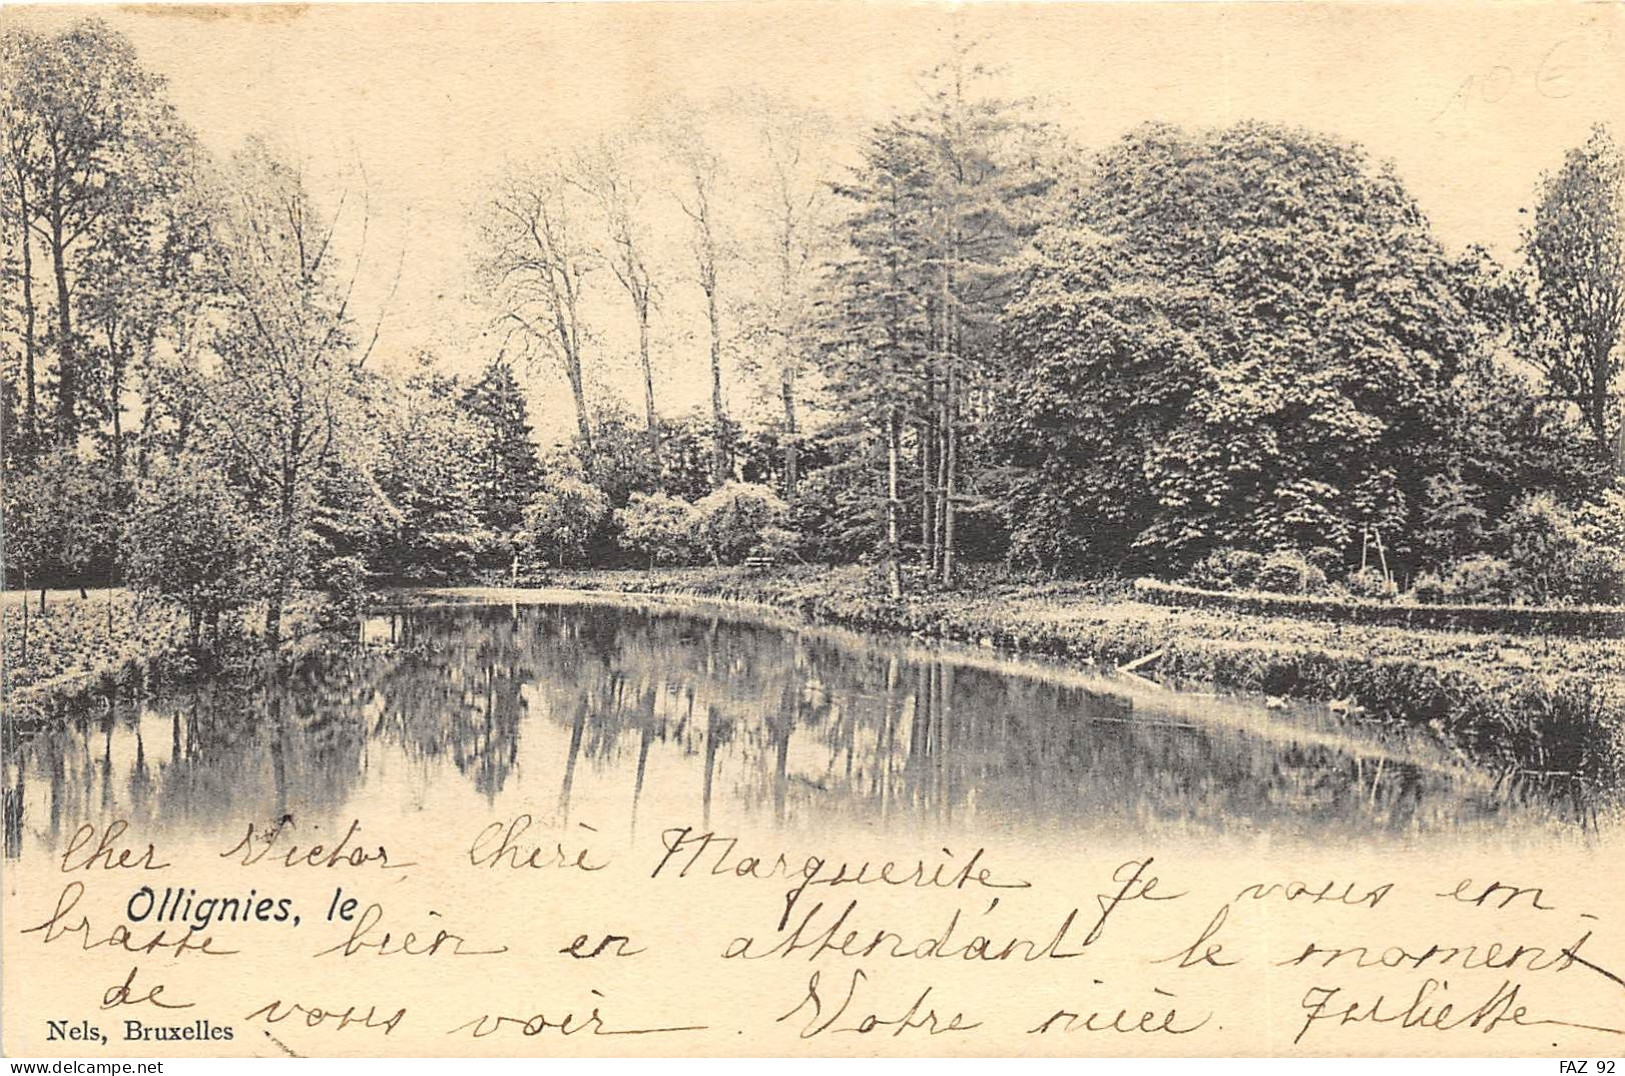 10 €
Cher Victor, Cheré Marguerite, Je vous em
Ollignies, le
brasse bien en attendant le moment
de vous voir. Votre niéce. Juliette
Nels, Bruxelles
FAZ 92